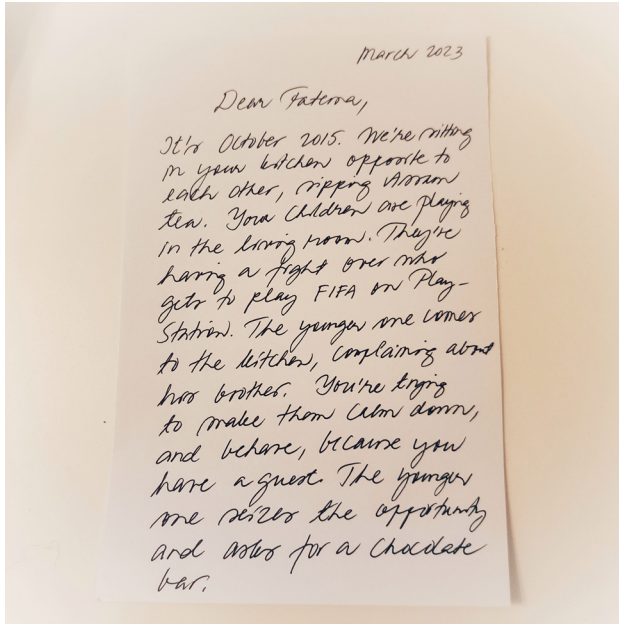 March 2023
Dear Fatema,
It's October 2015. We're sitting
in your kitchen opposite to
each other, sipping Assam
tea. Your children are playing
in the living room. They're
having a fight over who
gets to play FIFA on Play-
Station. The younger one comes
to the kitchen, complaining about
his brother. You're trying
to make them calm down,
and behave, because you
have a guest. The younger
one seizes the opportunity
and asks for a chocolate
bar.